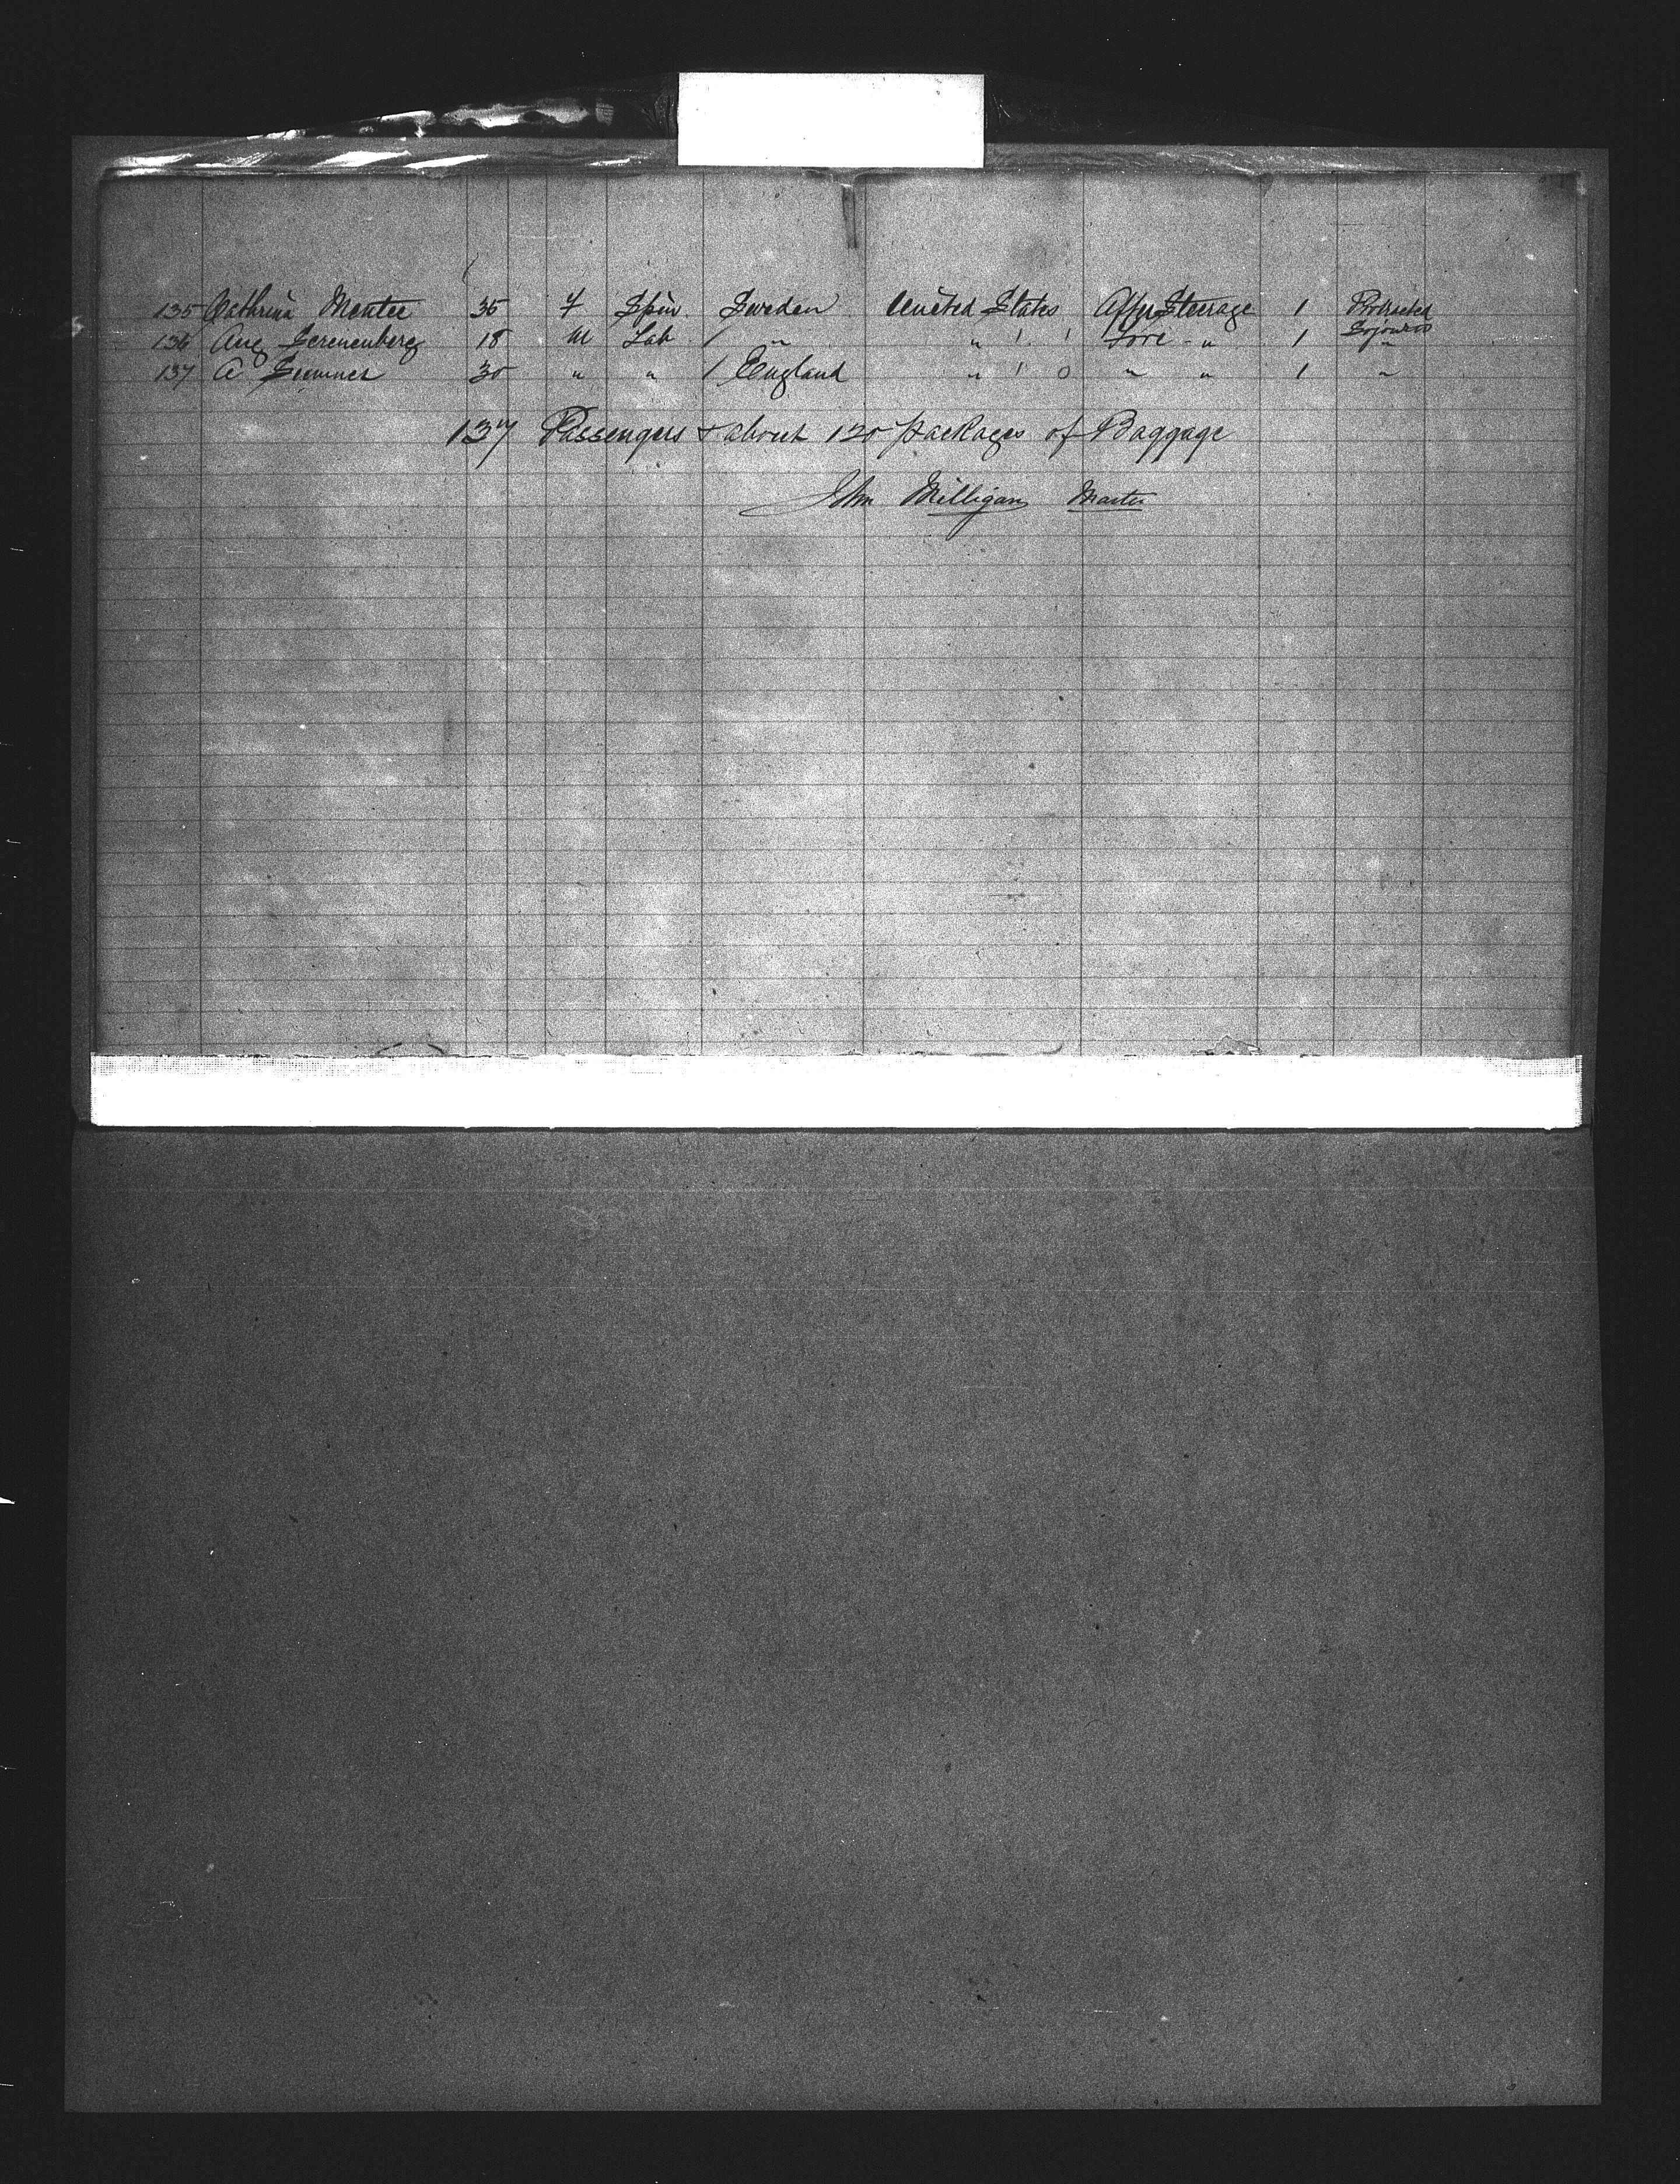 135 Cathrina Mentee 35 f Spin Sweden United States After Steerage 1 Protracted Sojourn
136 Aug 18 M Lab / " " Fore " 1 "
137 A Sumner 30 " " / England " " " 1 "
137 Passengers & about 120 packages of Baggage
John Milligan Master